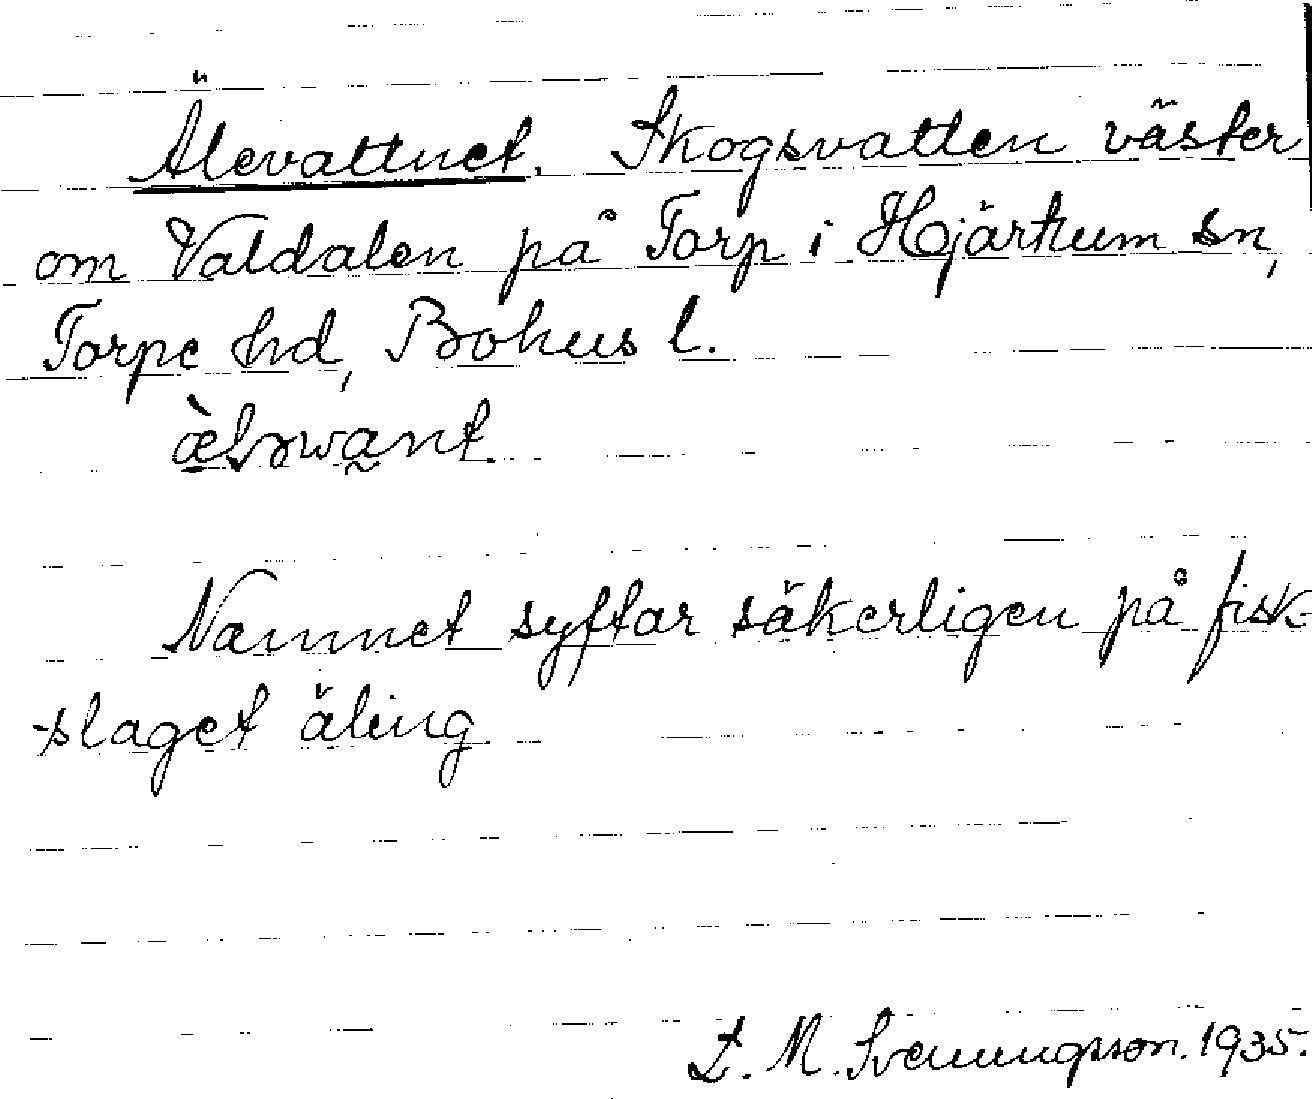 Älevattnet. Skogsvatten väster
om Valdalen på Torp i Hjärtum sn,
Torpe hd, Bohus l.
Namnet syftar säkerligen på fisk-
-slaget äling
M. Svenungsson. 1935.